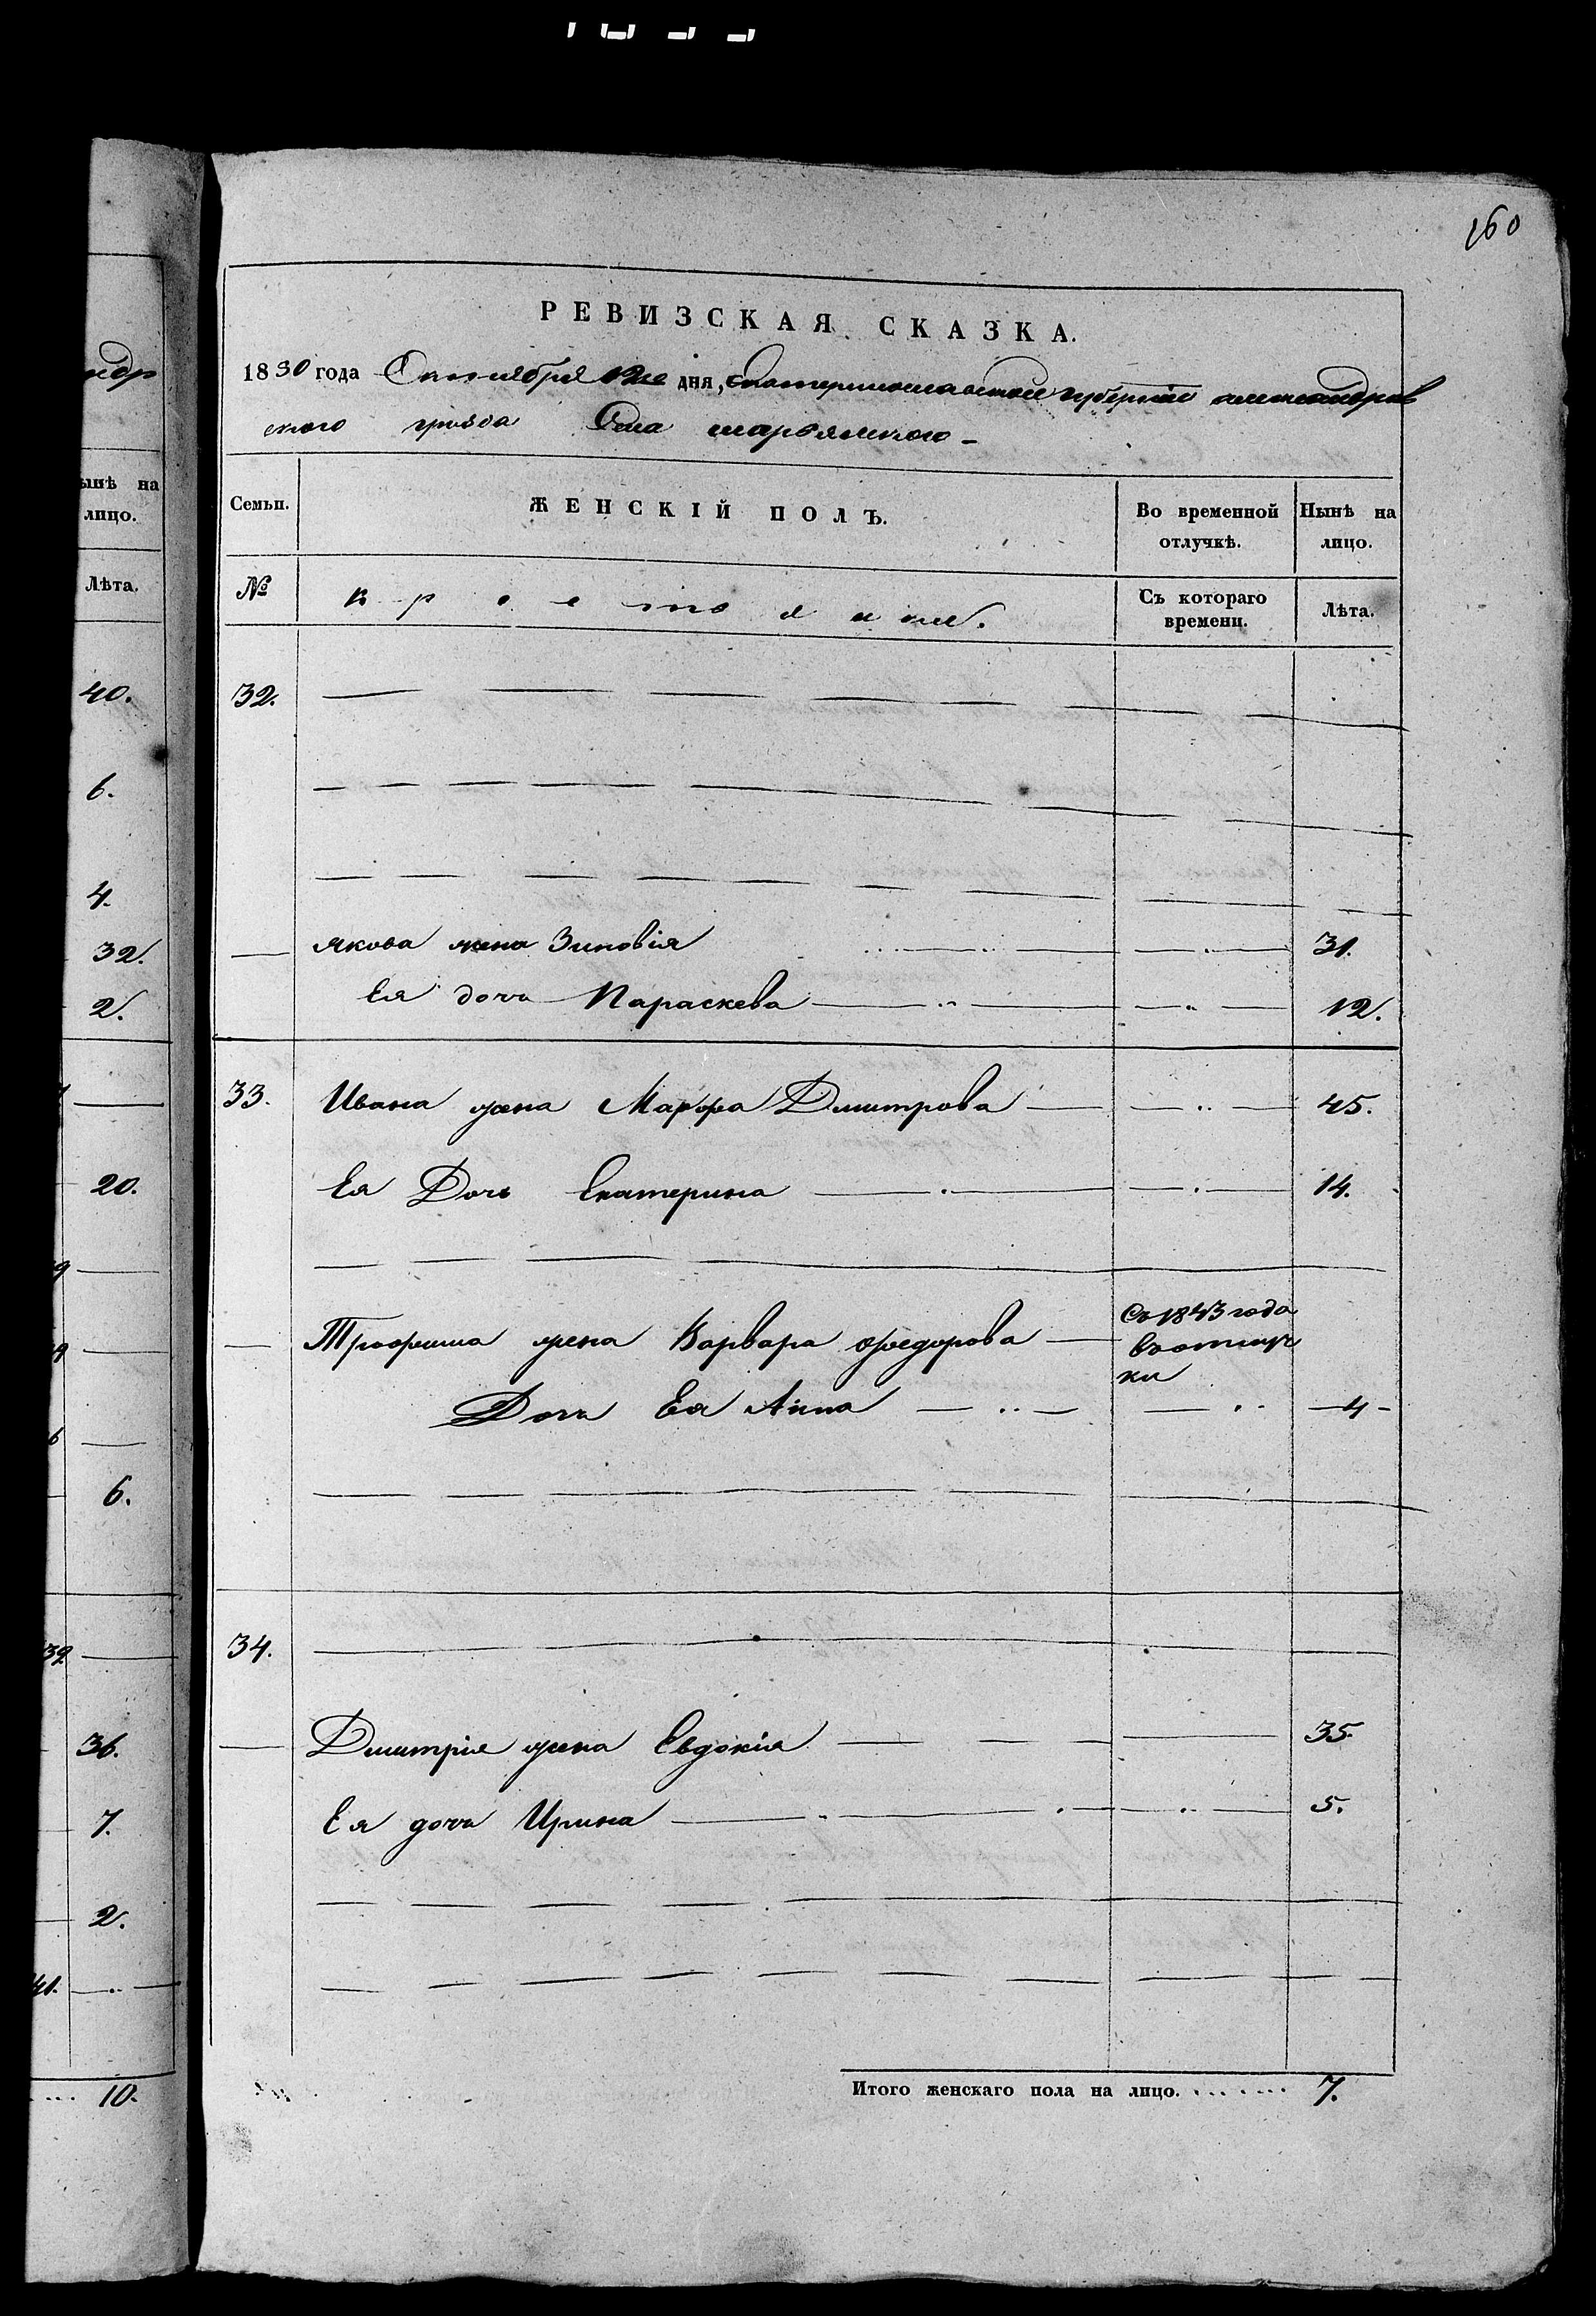 160
РЕВИЗСКАЯ СКАЗКА.
1850 года Октября 12го дня, Екатеринославской губернии александров
ского уѣзда Села марьянского -
Семьи. ЖЕНСКІЙ ПОЛЪ. Во временной отлучкѣ. Нынѣ на лицо.
№ крестьяне. Съ котораго времени. Лѣта.
32.
Якова жена Зиновія 31.
Ея дочь Параскева 12.
33. Ивана жена Марфа Дмитрова 45.
Ея Дочь Екатерина 14.
Трофима жена Варвара Федорова Съ 1843 года
Дочь Ея Анна 4
34.
Дмитрія жена Евдокія 35.
Ея дочь Ирина 5.
Итого женскаго пола на лицо. 7.
ндр
ынѣ на
лицо.
Лѣта.
40.
6.
4.
32.
2.
20.
6.
39
36.
7.
2.
41.
10.